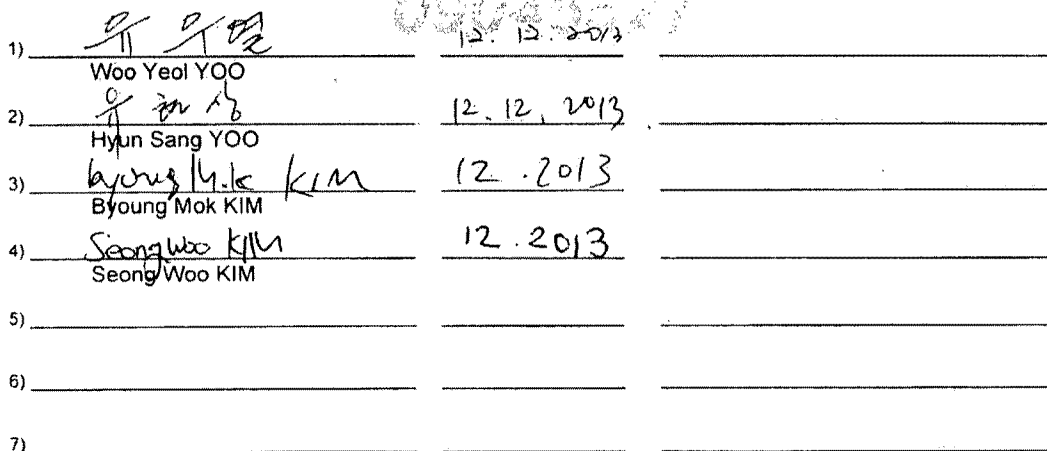 1) 유우열 12. 12. 2013
Woo Yeol YOO
2) 유현상 12. 12. 2013
Hyun Sang YOO
3) byoung M.k KIM 12 . 2013
Byoung Mok KIM
4) Seongwoo KIM 12 . 2013
Seong Woo KIM
5)
6)
7)